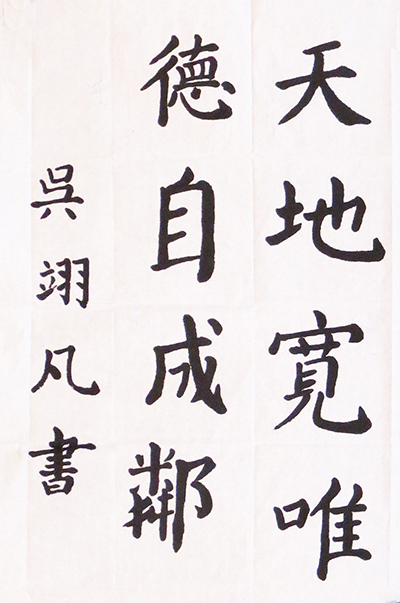 天地寬唯
德自成鄰
吳翊凡書